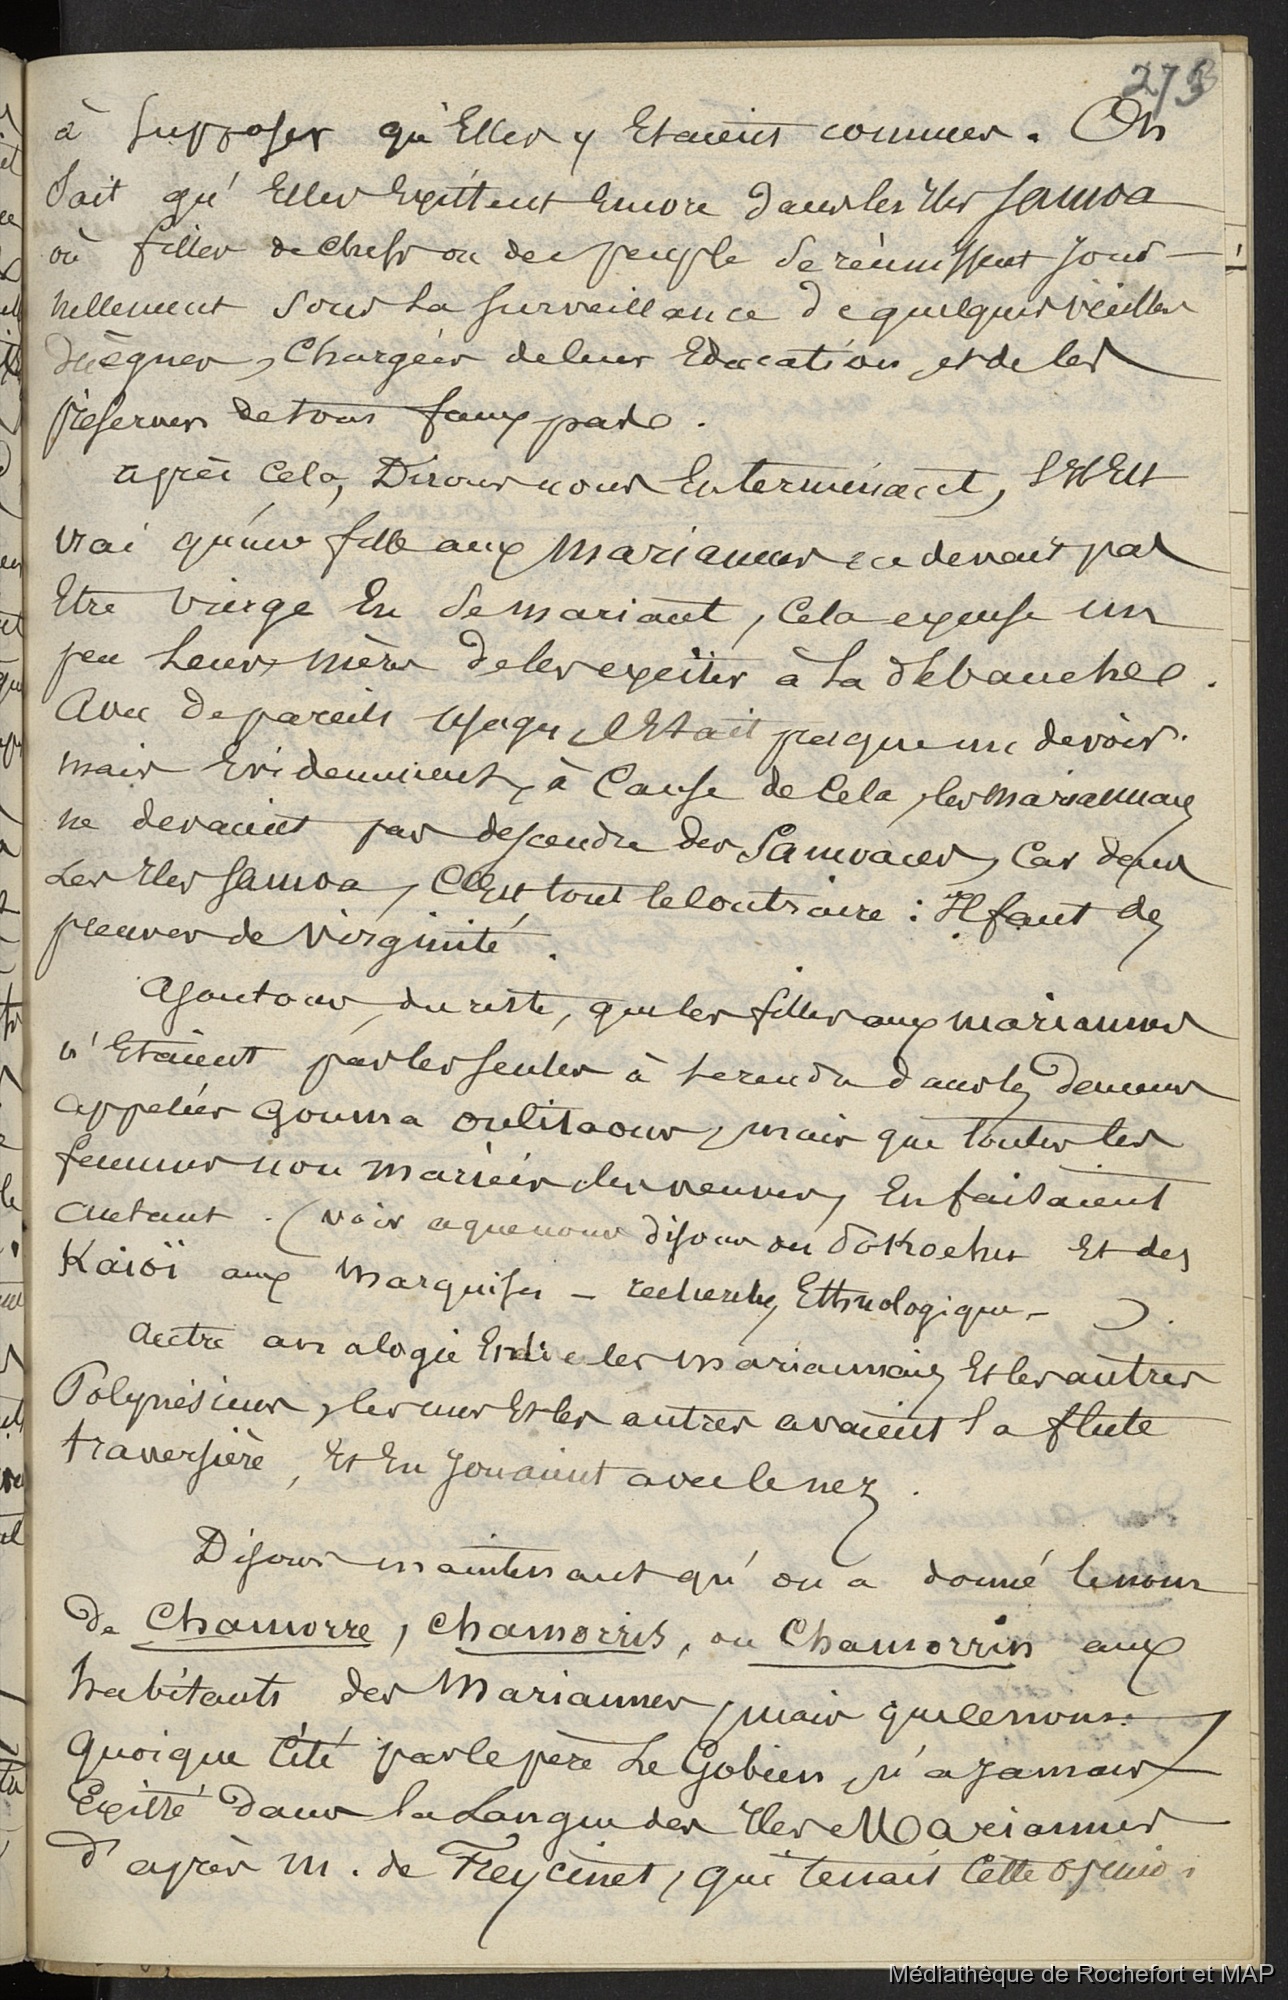 273
à supposer qu'Elles y Etaient connues. On
Sait qu'Elles Existent Encore dans les Iles Samoa
où filles de chefs ou de peuple se réunissent jour-
nellement sous la surveillance de quelques vieilles
duègnes, chargées de leur Education, et de les
préserver de tous faux pas.
après cela, Disons nous En terminant, s'il Est
vrai qu'une fille aux Mariannes ne devait pas
Etre vierge En se mariant, cela excuse un
peu leurs mères de les exciter à la débauche.
Avec de pareils usages, c'Etait presque un devoir.
mais Evidemment, à cause de cela, les Mariannais
ne devaient pas descendre des Samoans, car dans
les Iles Samoa, c'Est tout le contraire : Il faut des
preuves de virginité.
Ajoutons, du reste, que les filles aux Mariannes
n'Etaient pas les seules à se rendre dans les demeures
appelées Gouma oulitaous, mais que toutes les
femmes non mariées, les veuves, En faisaient
autant. (voir ce que nous disons du Et des
Kaïoï aux Marquises - recherches Ethnologiques - ).
Autre analogie Entre les Mariannais Et les autres
Polynésiens, les uns Et les autres avaient la flute
traversière, Et En jouaient avec le nez.
Disons maintenant qu'on a donné le nom
de Chamorre, Chamorris, ou Chamorrin aux
habitants des Mariannes, mais que le nom
quoique cité par le père Le Gobien, n'a jamais
Existé dans la Langue des Iles Mariannes
d'après M. de Freycinet, qui tenait cette opinion
Médiathèque de Rochefort et MAP